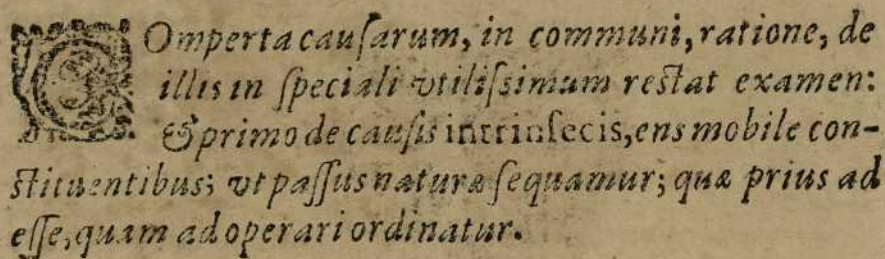 COmperta cauſarum, in communi, ratione, de
illis in ſpeciali vtiliſsimum reſtat examen:
& primo de cauſis intrinſecis, ens mobile con-
ſtituentibus; vt paſſus naturæ ſequamur; quæ prius ad
eſſe, quam ad operari ordinatur.